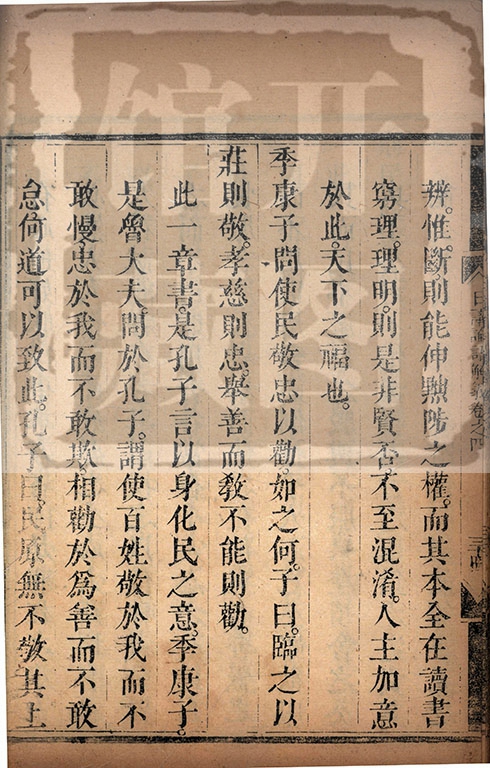 辨惟斷則能伸黜陟之權。而其本全在讀書
窮理。理明。則是非賢否不至混淆。人主加意
於此。天下之福也。
季康子問使民敬忠以勸。如之何。子曰。臨之以
莊則敬。孝慈則忠。舉善而教不能則勸。
此一章書。是孔子言以身化民之意。季康子。
是魯大夫。問於孔子。謂使百姓敬於我而不
敢慢。忠於我而不敢欺。相勸於為善而不敢
怠。何道可以致此。孔子曰。民原無不敬其上